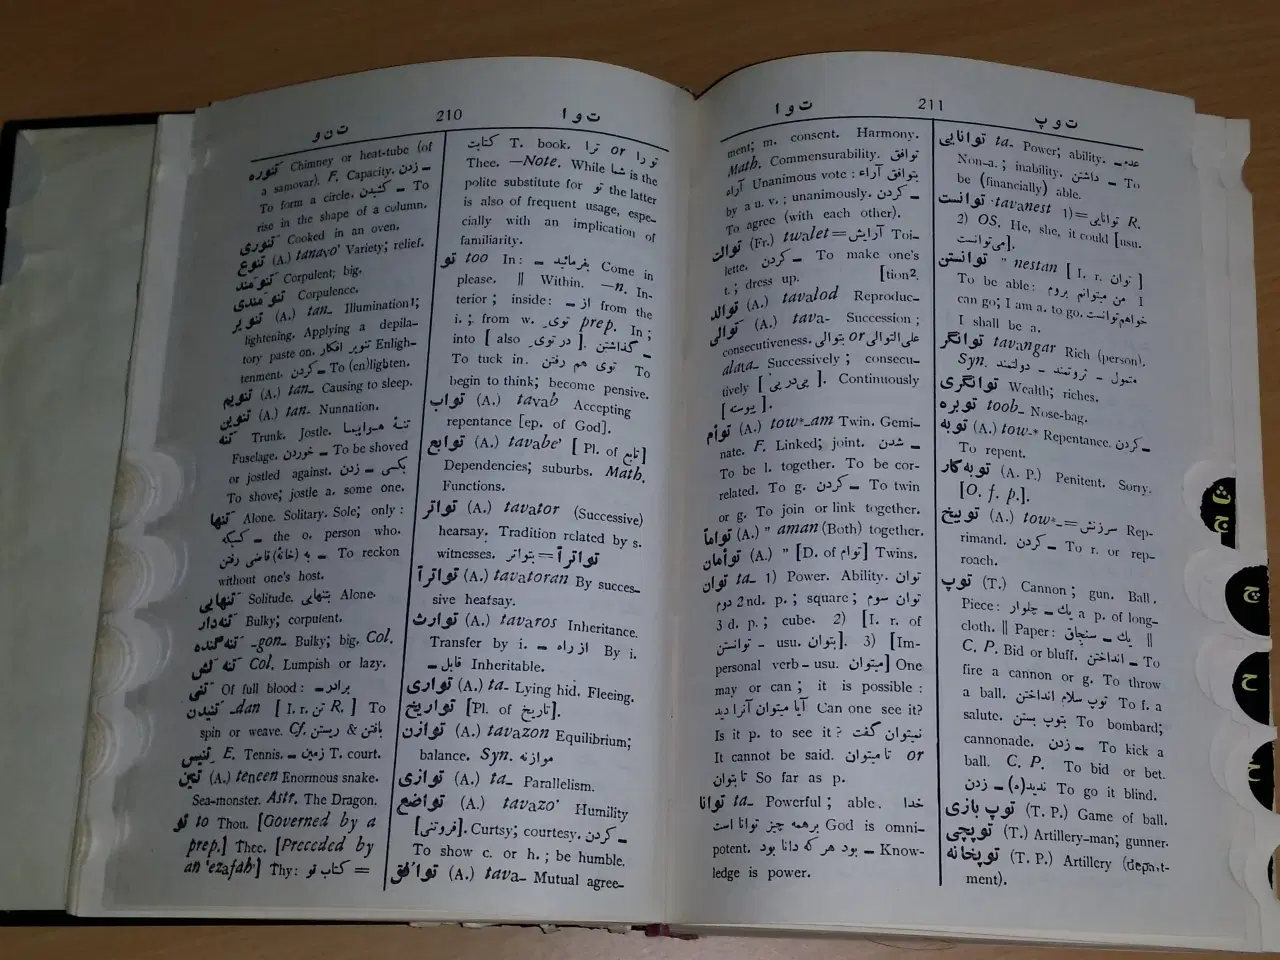 ت ن و
210
ت و ا
تنوره Chimney or heat-tube (of
a samovar). F. Capacity. زدن ـ
To form a circle. کشیدن ـ To
rise in the shape of a column.
تنوری Cooked in an oven.
تنوع (A.) tanavo' Variety; relief.
تنومند Corpulent; big.
تنومندی Corpulence.
تنویر (A.) tan_ Illumination1;
lightening. Applying a depila-
tory paste on. تنویر افکار Enligh-
tenment. کردن ـ To (en)lighten.
تنویم (A.) tan_ Causing to sleep.
تنوین (A.) tan. Nunnation.
تنه Trunk. Jostle. تنهٔ هواپیما
Fuselage. خوردن ـ To be shoved
or jostled against. بکسی ـ زدن
To shove; jostle a. some one.
تنها Alone. Solitary. Sole; only :
کسیکه ـ the o. person who.
به (خانهٔ) قاضی رفتن ـ To reckon
without one's host.
تنهایی Solitude. بتنهایی Alone.
تنه‌دار Bulky; corpulent.
تنه‌گنده _gon_ Bulky; big. Col.
تنه لش Col. Lumpish or lazy.
تنی Of full blood : برادر ـ
تنیدن _dan [ I. r. تن R. ] To
spin or weave. Cf. بافتن & ریستن
تنیس E. Tennis. زمین ـ T. court.
تنین (A.) teneen Enormous snake.
Sea-monster. Astr. The Dragon.
تو to Thou. [Governed by a
prep.] Thee. [Preceded by
an 'ezafah] Thy: کتاب تو =
کتابت T. book. ترا or تو را
Thee. —Note. While شما is the
polite substitute for تو the latter
is also of frequent usage, espe-
cially with an implication of
familiarity.
تو too In: بفرمائید ـ Come in
please. || Within. —n. In-
terior ; inside: از ـ from the
i. ; from w. توی prep. In ;
into [ also در توی ]. گذاشتن ـ
To tuck in. توی هم رفتن To
begin to think; become pensive.
تواب (A.) tavab Accepting
repentance [ep. of God].
توابع (A.) tavabe' [ Pl. of تابع ]
Dependencies; suburbs. Math.
Functions.
تواتر (A.) tavator (Successive)
hearsay. Tradition related by s.
witnesses. بتواتر = تواتراً
تواتراً (A.) tavatoran By succes-
sive hearsay.
توارث (A.) tavaros Inheritance.
Transfer by i. از راه ـ By i.
قابل ـ Inheritable.
تواری (A.) ta- Lying hid. Fleeing.
تواریخ [Pl. of تاریخ].
توازن (A.) tavazon Equilibrium;
balance. Syn. موازنه
توازی (A.) ta_ Parallelism.
تواضع (A.) tavazo' Humility
[فروتنی]. Curtsy; courtesy. کردن ـ
To show c. or h. ; be humble.
توافق (A.) tava- Mutual agree-
ت و ا
211
ت و پ
ment; m. consent. Harmony.
Math. Commensurability. توافق
آراء Unanimous vote : بتوافق آراء
by a u. v. ; unanimously. کردن ـ
To agree (with each other).
توالت (Fr.) twalet = آرایش Toi-
lette. کردن ـ To make one's
t. ; dress up. [tion2.
توالد (A.) tavalod Reproduc-
توالی (A.) tava- Succession ;
consecutiveness. بتوالی or علی‌التوالی
alata_ Successively ; consecu-
tively [ پی‌درپی ]. Continuously
[ پیوسته ].
توأم (A.) tow*_am Twin. Gemi-
nate. F. Linked; joint. شدن ـ
To be l. together. To be cor-
related. To g. کردن ـ To twin
or g. To join or link together.
توأماً (A.) " aman (Both) together.
توأمان (A.) " [D. of توأم] Twins.
توان ta_ 1) Power. Ability. توان
دوم 2nd. p. ; square ; توان سوم
3 d. p. ; cube. 2) [I. r. of
توانستن - usu. بتوان]. 3) [Im-
personal verb - usu. میتوان] One
may or can ; it is possible :
آیا میتوان آنرا دید Can one see it?
Is it p. to see it ? نمیتوان گفت
It cannot be said. تا میتوان or
تا بتوان So far as p.
توانا ta_ Powerful ; able. خدا
برهمه چیز توانا است God is omni-
potent. بود هر که دانا بود ـ Know-
ledge is power.
توانایی ta- Power; ability. عدم ـ
Non-a. ; inability. داشتن ـ To
be (financially) able.
توانست tavanest 1) = توانایی R.
2) OS. He, she, it could [usu.
می‌توانست].
توانستن " nestan [ I. r. توان ]
To be able: من میتوانم بروم I
can go; I am a. to go. خواهم توانست
I shall be a.
توانگر tavangar Rich (person).
Syn. متمول - ثروتمند - دولتمند
توانگری Wealth; riches.
توبره toob_ Nose-bag.
توبه (A.) tow-* Repentance. کردن ـ
To repent.
توبه‌کار (A. P.) Penitent. Sorry.
[O. f. p.].
توبیخ (A.) tow*_ = سرزنش Rep-
rimand. کردن ـ To r. or rep-
roach.
توپ (T.) Cannon ; gun. Ball.
Piece: یك ـ چلوار a p. of long-
cloth. || Paper: یك ـ سنچاق ||
C. P. Bid or bluff. انداختن ـ To
fire a cannon or g. To throw
a ball. توپ سلام انداختن To f. a
salute. بتوپ بستن To bombard;
cannonade. زدن ـ To kick a
ball. C. P. To bid or bet.
ندید(ه) ـ زدن To go it blind.
توپ بازی (T. P.) Game of ball.
توپچی (T.) Artillery-man; gunner.
توپخانه (T. P.) Artillery (depart-
ment).
ث
ج
چ
ح
خ